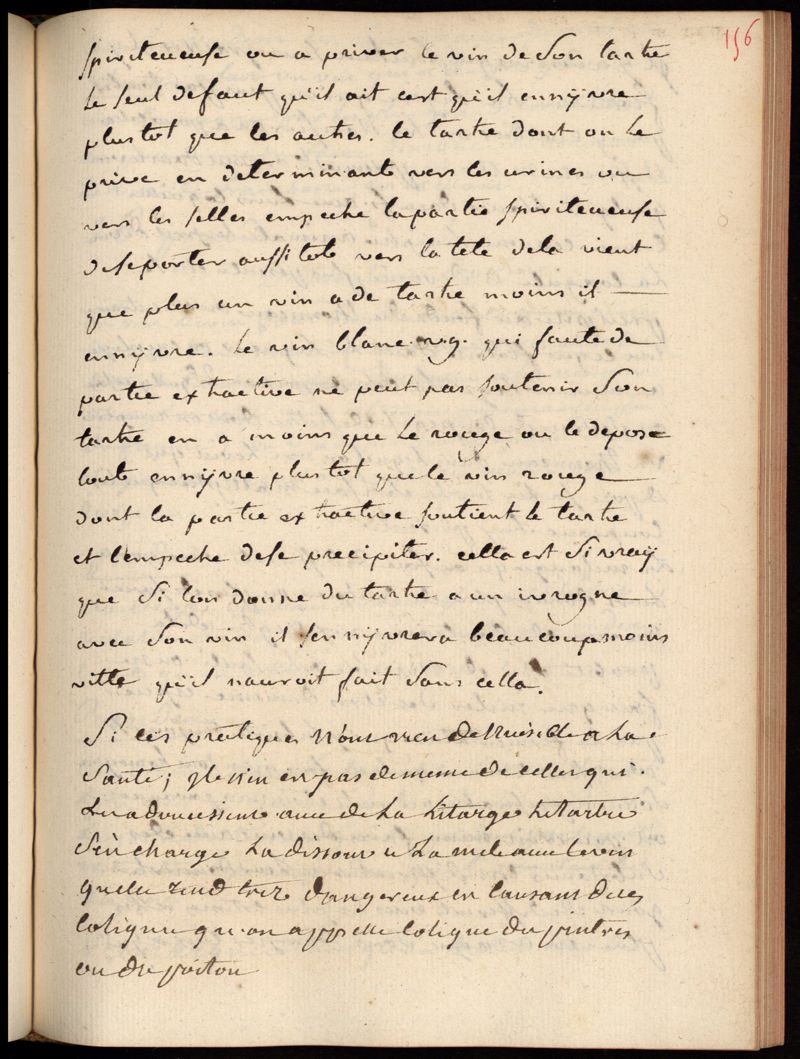 156
spiriteueuse ou a priver le vin de son tartre
le seul defaut qu'il ait cest qu'il ennyvre
plustot que les autres. le tartre dont on le
prive en determinant vers les urines ou
vers les selles empeche la partie spiriteueuse
de se porter aussitot vers la tete de la vient
que plus un vin a de tartre moins il
ennyvre. le vin blanc v.g. qui faute de
partie extractive ne peut pas soutenir son
tartre en a moins que le rouge ou le depose
tout ennyvre plustot que le vin rouge
dont la partie extractive soutient le tartre
et l'empeche de se precipiter. cella est si vray
que si lon donne du tartre a un ivrogne
avec son vin il sennyvrera beaucoup moins
vitte qu'il nauroit fait sans cella.
Si ces pratiques n'ont rien de nuisible a la
santé; il n'en est pas de meme de celles qui
ladoucissent avec de la litarge le tartre
s'en charge la dissout et la mele avec le vin
quelle rend trez dangereux en causant des
colique qu'on appelle colique des peintres
ou du poitou